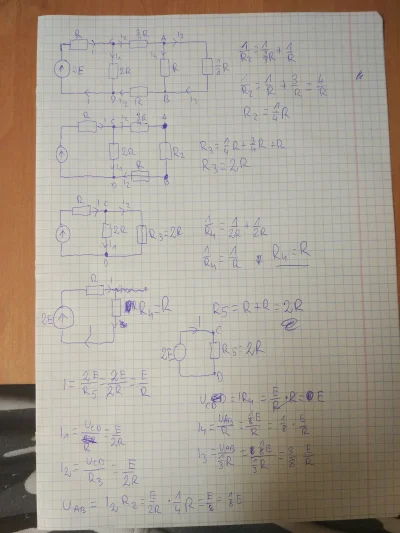 R I C I₂ ¾R A I₃
2E I₁ 2R I₄ R ⅓R
I D I₂ R B I₃
1/R₂ = 1/⅓R + 1/R
1/R₂ = 1/R + 3/R = 4/R
R₂ = ¼R
R I C I₂ ¾R A
2R R₂
D I₂ R B
R₃ = ¼R + ¾R + R
R₃ = 2R
R I C I₂
2R I₁ R₃ = 2R
D
1/R₄ = 1/2R + 1/2R
1/R₄ = 1/R R₄ = R
R I
2E R₄ = R
R₅ = R + R = 2R
I C
2E R₅ = 2R
D
I = 2E/R₅ = 2E/2R = E/R
U_CD = I R₄ = E/R · R = E
I₁ = U_CD/R = E/2R
I₄ = U_AB/R = ⅛E/R = ⅛ · E/R
I₂ = U_CD/R₃ = E/2R
I₃ = U_AB/⅓R = ⅛E/⅓R = 3/8 · E/R
U_AB = I₂ R₂ = E/2R · ¼R = E/8 = ⅛E